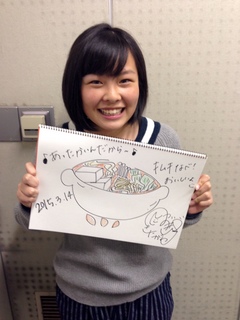 ♪あったかいんだからー♪
キムチなべ!
おいしいよ
2015.3.14